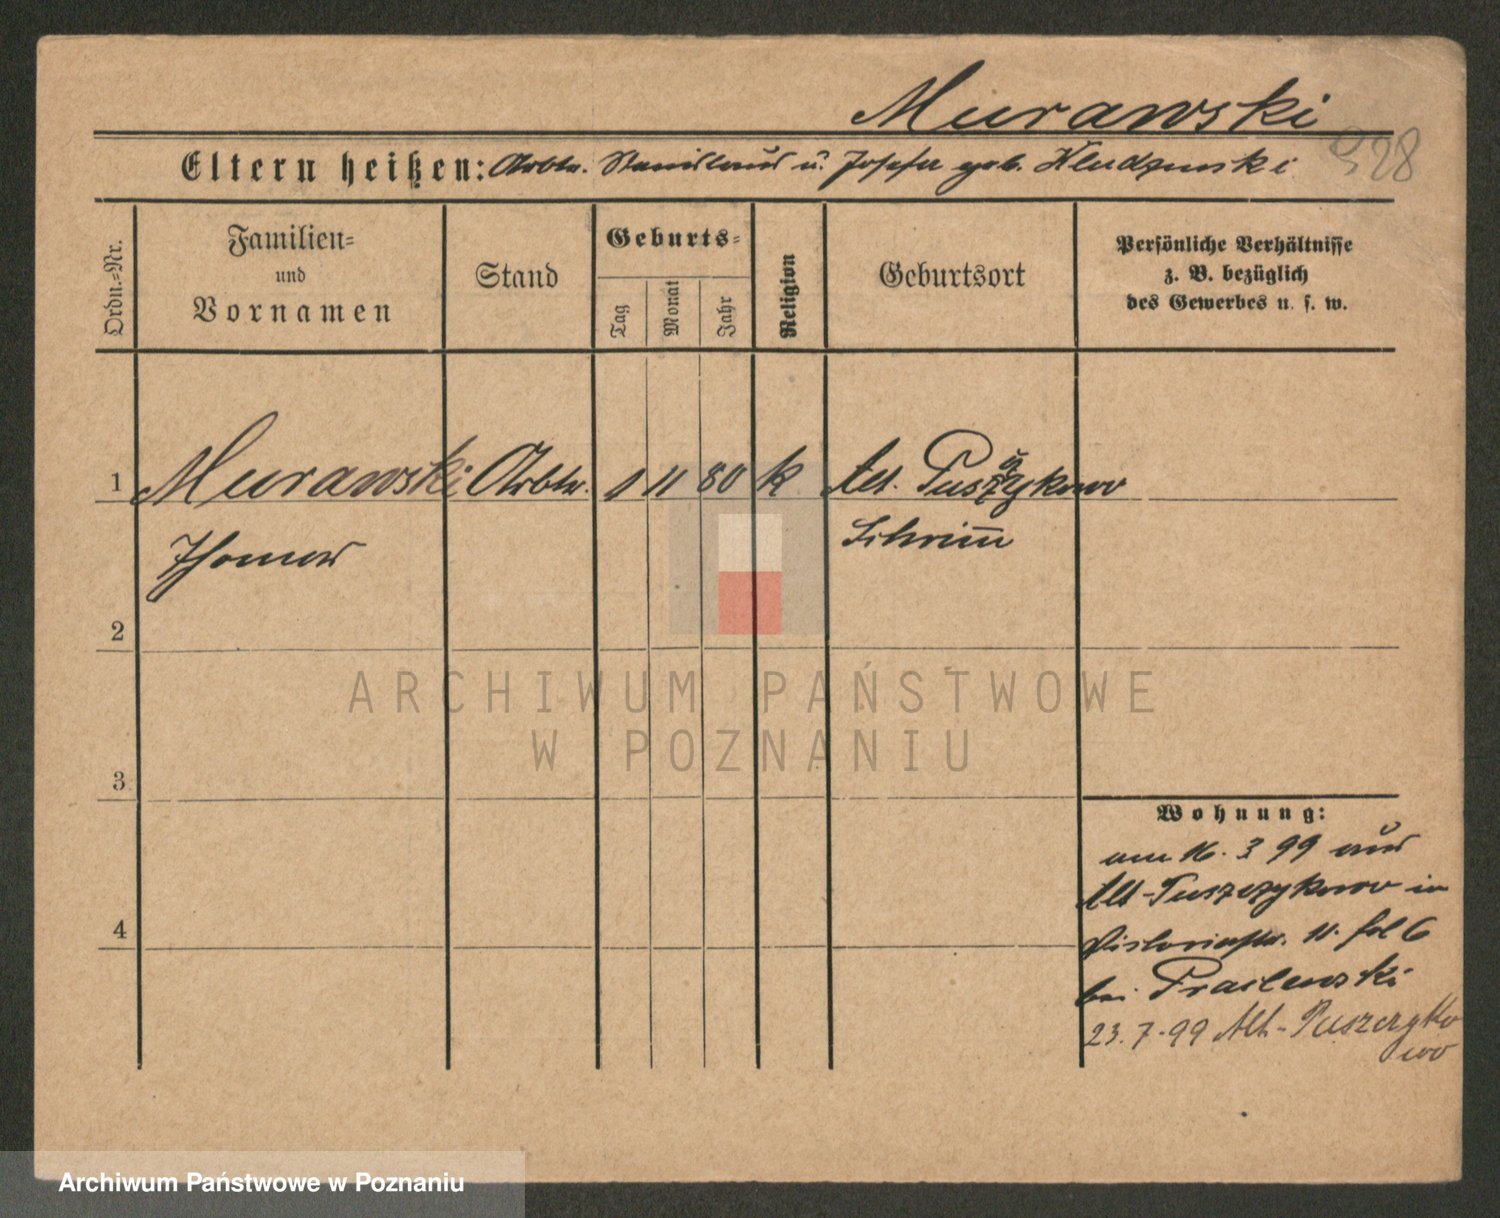 Murawski
328
Eltern heißen: Arbtr. Stanislaus u. Josefa geb. Kludzynski
Ordn.=Nr.
Familien=
und
Vornamen
Stand
Geburts=
Tag
Monat
Jahr
Religion
Geburtsort
Persönliche Verhältnisse
z. B. bezüglich
des Gewerbes u. s. w.
1 Murawski Arbtr. 1 11 80 k Alt. Puszczykowo
Thomas
Schrimm
2
ARCHIWUM PAŃSTWOWE
W POZNANIU
3
Wohnung:
am 16. 3 99 aus
Alt-Puszczykowo in
Victoriastr. 11. bei
23. 7. 99 Alt-Puszczyko
wo
4
Archiwum Państwowe w Poznaniu